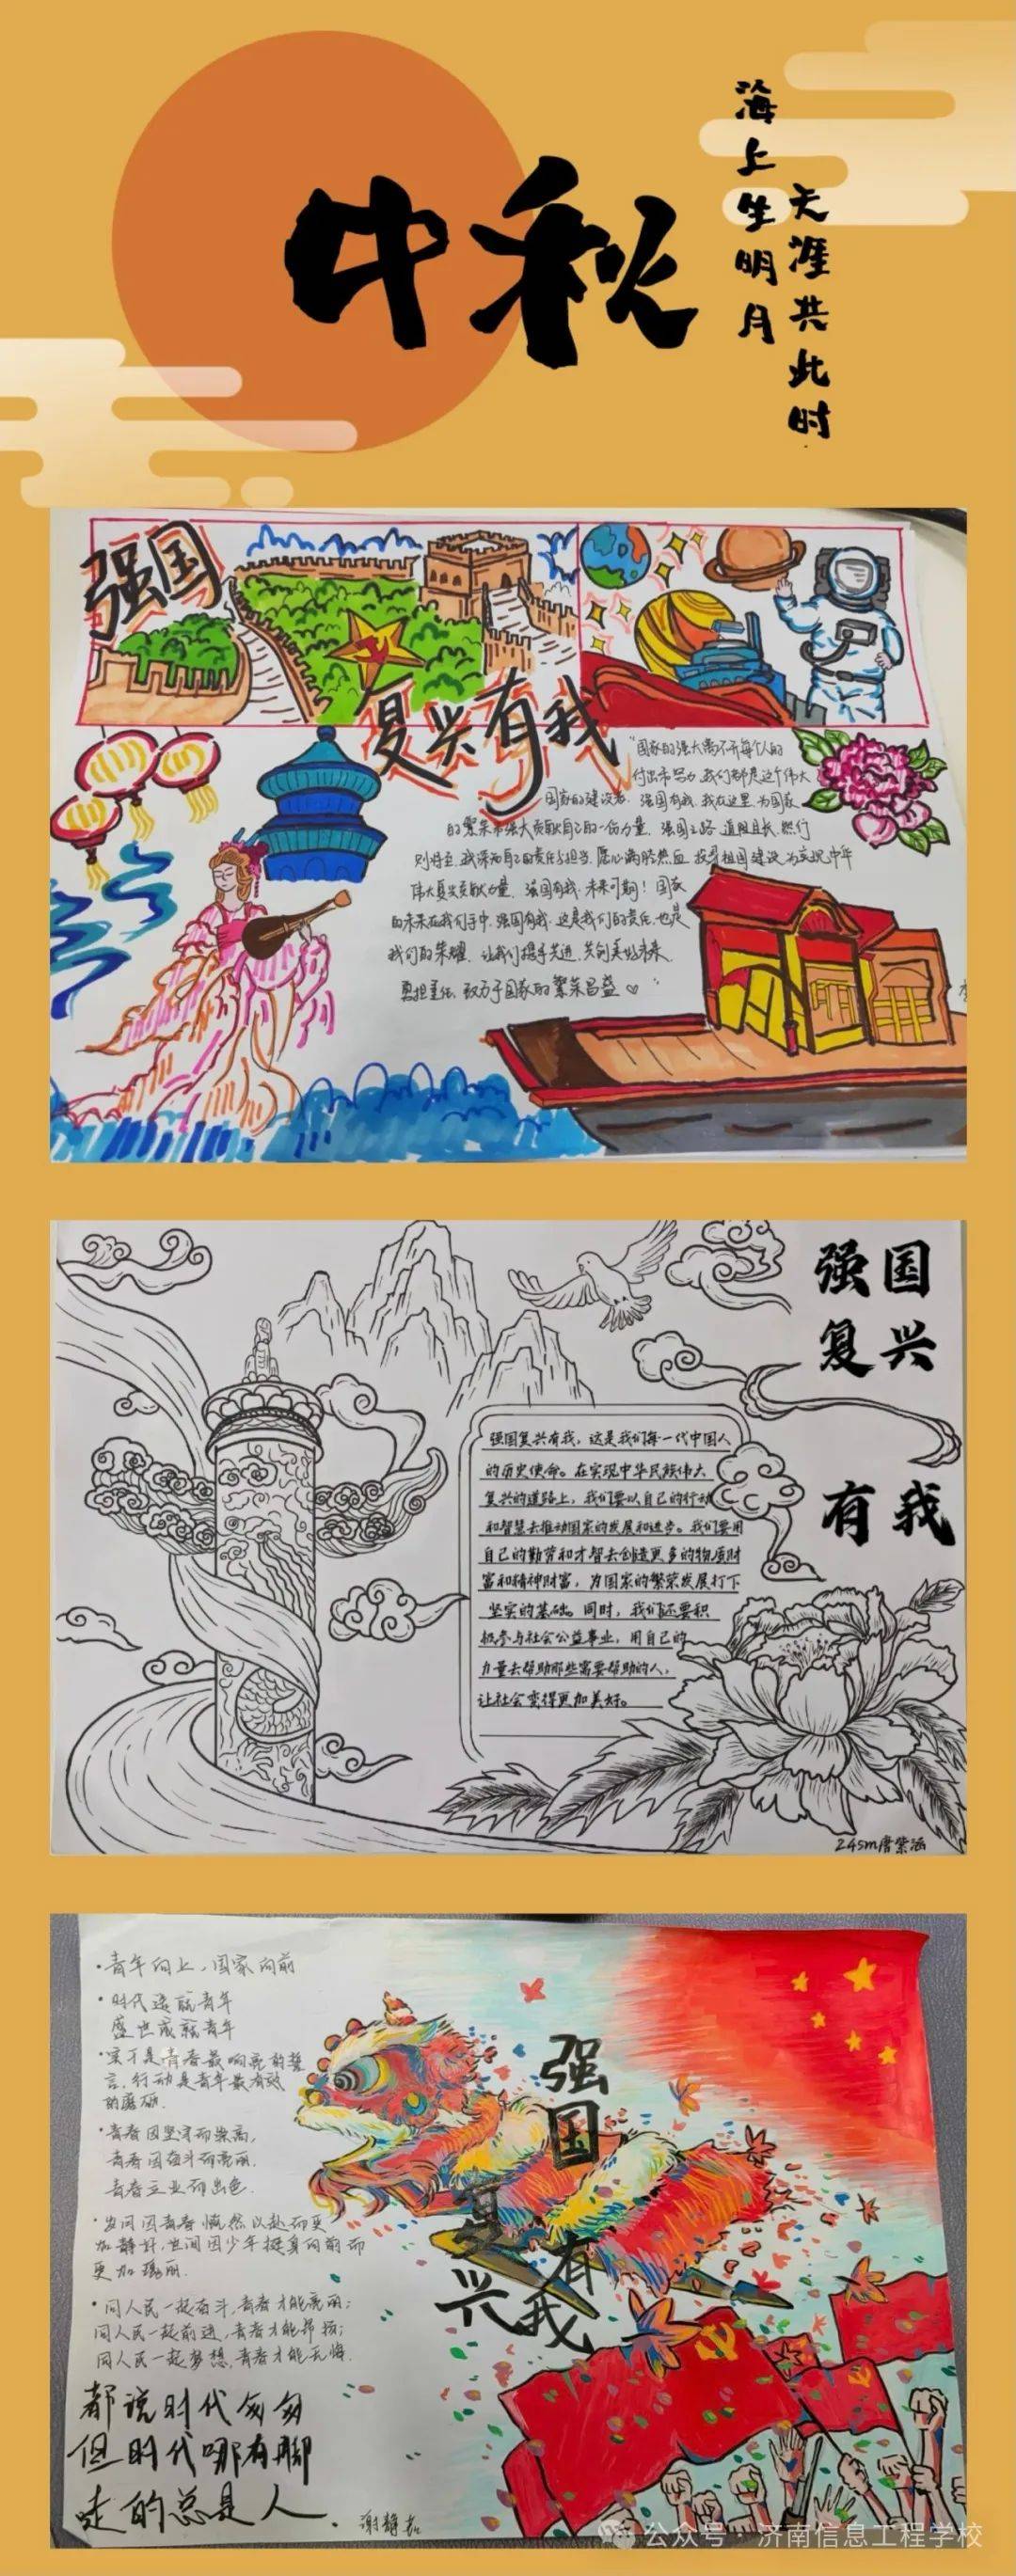 中秋
海上生明月
天涯共此时
强国
复兴有我
"国家的强大离不开每个人的
付出和努力,我们都是这个伟大
国家的建设者.强国有我,我在这里,为国家
的繁荣和强大贡献自己的一份力量.强国之路,道阻且长,然行
则将至.我深知自己的责任与担当,愿以满腔热血,投身祖国建设,为实现中华
伟大复兴贡献力量.强国有我,未来可期!国家
的未来在我们手中,强国有我,这是我们的责任,也是
我们的荣耀.让我们携手共进,共创美好未来.
勇担重任,致力于国家的繁荣昌盛♡"
强国
复兴
有我
强国复兴有我,这是我们每一代中国人
的历史使命。在实现中华民族伟大
复兴的道路上,我们要以自己的行动
和智慧去推动国家的发展和进步。我们要用
自己的勤劳和才智去创造更多的物质财
富和精神财富,为国家的繁荣发展打下
坚实的基础。同时,我们还要积
极参与社会公益事业,用自己的
力量去帮助那些需要帮助的人,
让社会变得更加美好。
24sm唐紫涵
·青年向上,国家向前
·时代造就青年
盛世成就青年
·实干是青春最响亮的誓
言,行动是青年最有效
的磨砺.
·青春因坚守而崇高,
青春因奋斗而亮丽.
青春立业而出色.
·世间因青春慨然以赴而更
加静好,世间因少年挺身向前而
更加瑰丽.
·同人民一起奋斗,青春才能亮丽;
同人民一起前进,青春才能昂扬;
同人民一起梦想,青春才能无悔.
都说时代匆匆
但时代哪有脚
走的总是人.
谢静茹
强国
复兴
有我
公众号·济南信息工程学校